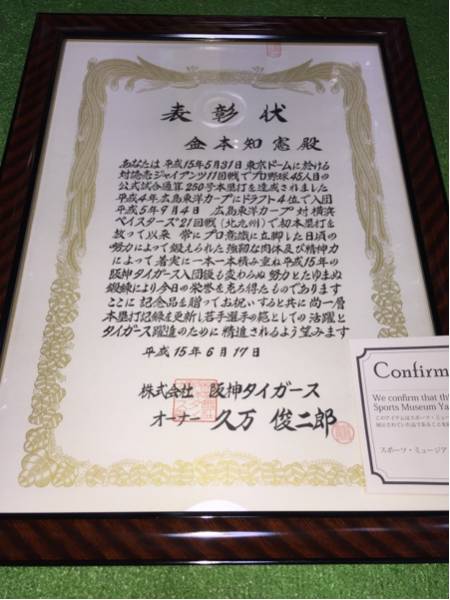 表彰状
金本知憲殿
あなたは平成15年5月31日東京ドームに於ける
対読売ジャイアンツ11回戦でプロ野球45人目の
公式試合通算250号本塁打を達成されました
平成4年広島東洋カープにドラフト4位で入団
平成5年9月4日 広島東洋カープ対横浜
ベイスターズ21回戦(北九州)で初本塁打を
放って以来 常にプロ意識に立脚した日頃の
努力によって鍛えられた強靭な肉体及び精神力
によって着実に一本一本積み重ね平成15年の
阪神タイガース入団後も変わらぬ努力とたゆまぬ
鍛練により今日の栄誉を克ち得たものであります
ここに記念品を贈ってお祝いすると共に尚一層
本塁打記録を更新し若手選手の範としての活躍と
タイガース躍進のために精進されるよう望みます
平成15年6月17日
株式会社 阪神タイガース
オーナー 久万俊二郎
Confirm
We confirm that th
Sports Museum Ya
このアイテムはスポーツ・ミュー
スポーツ・ミュージア